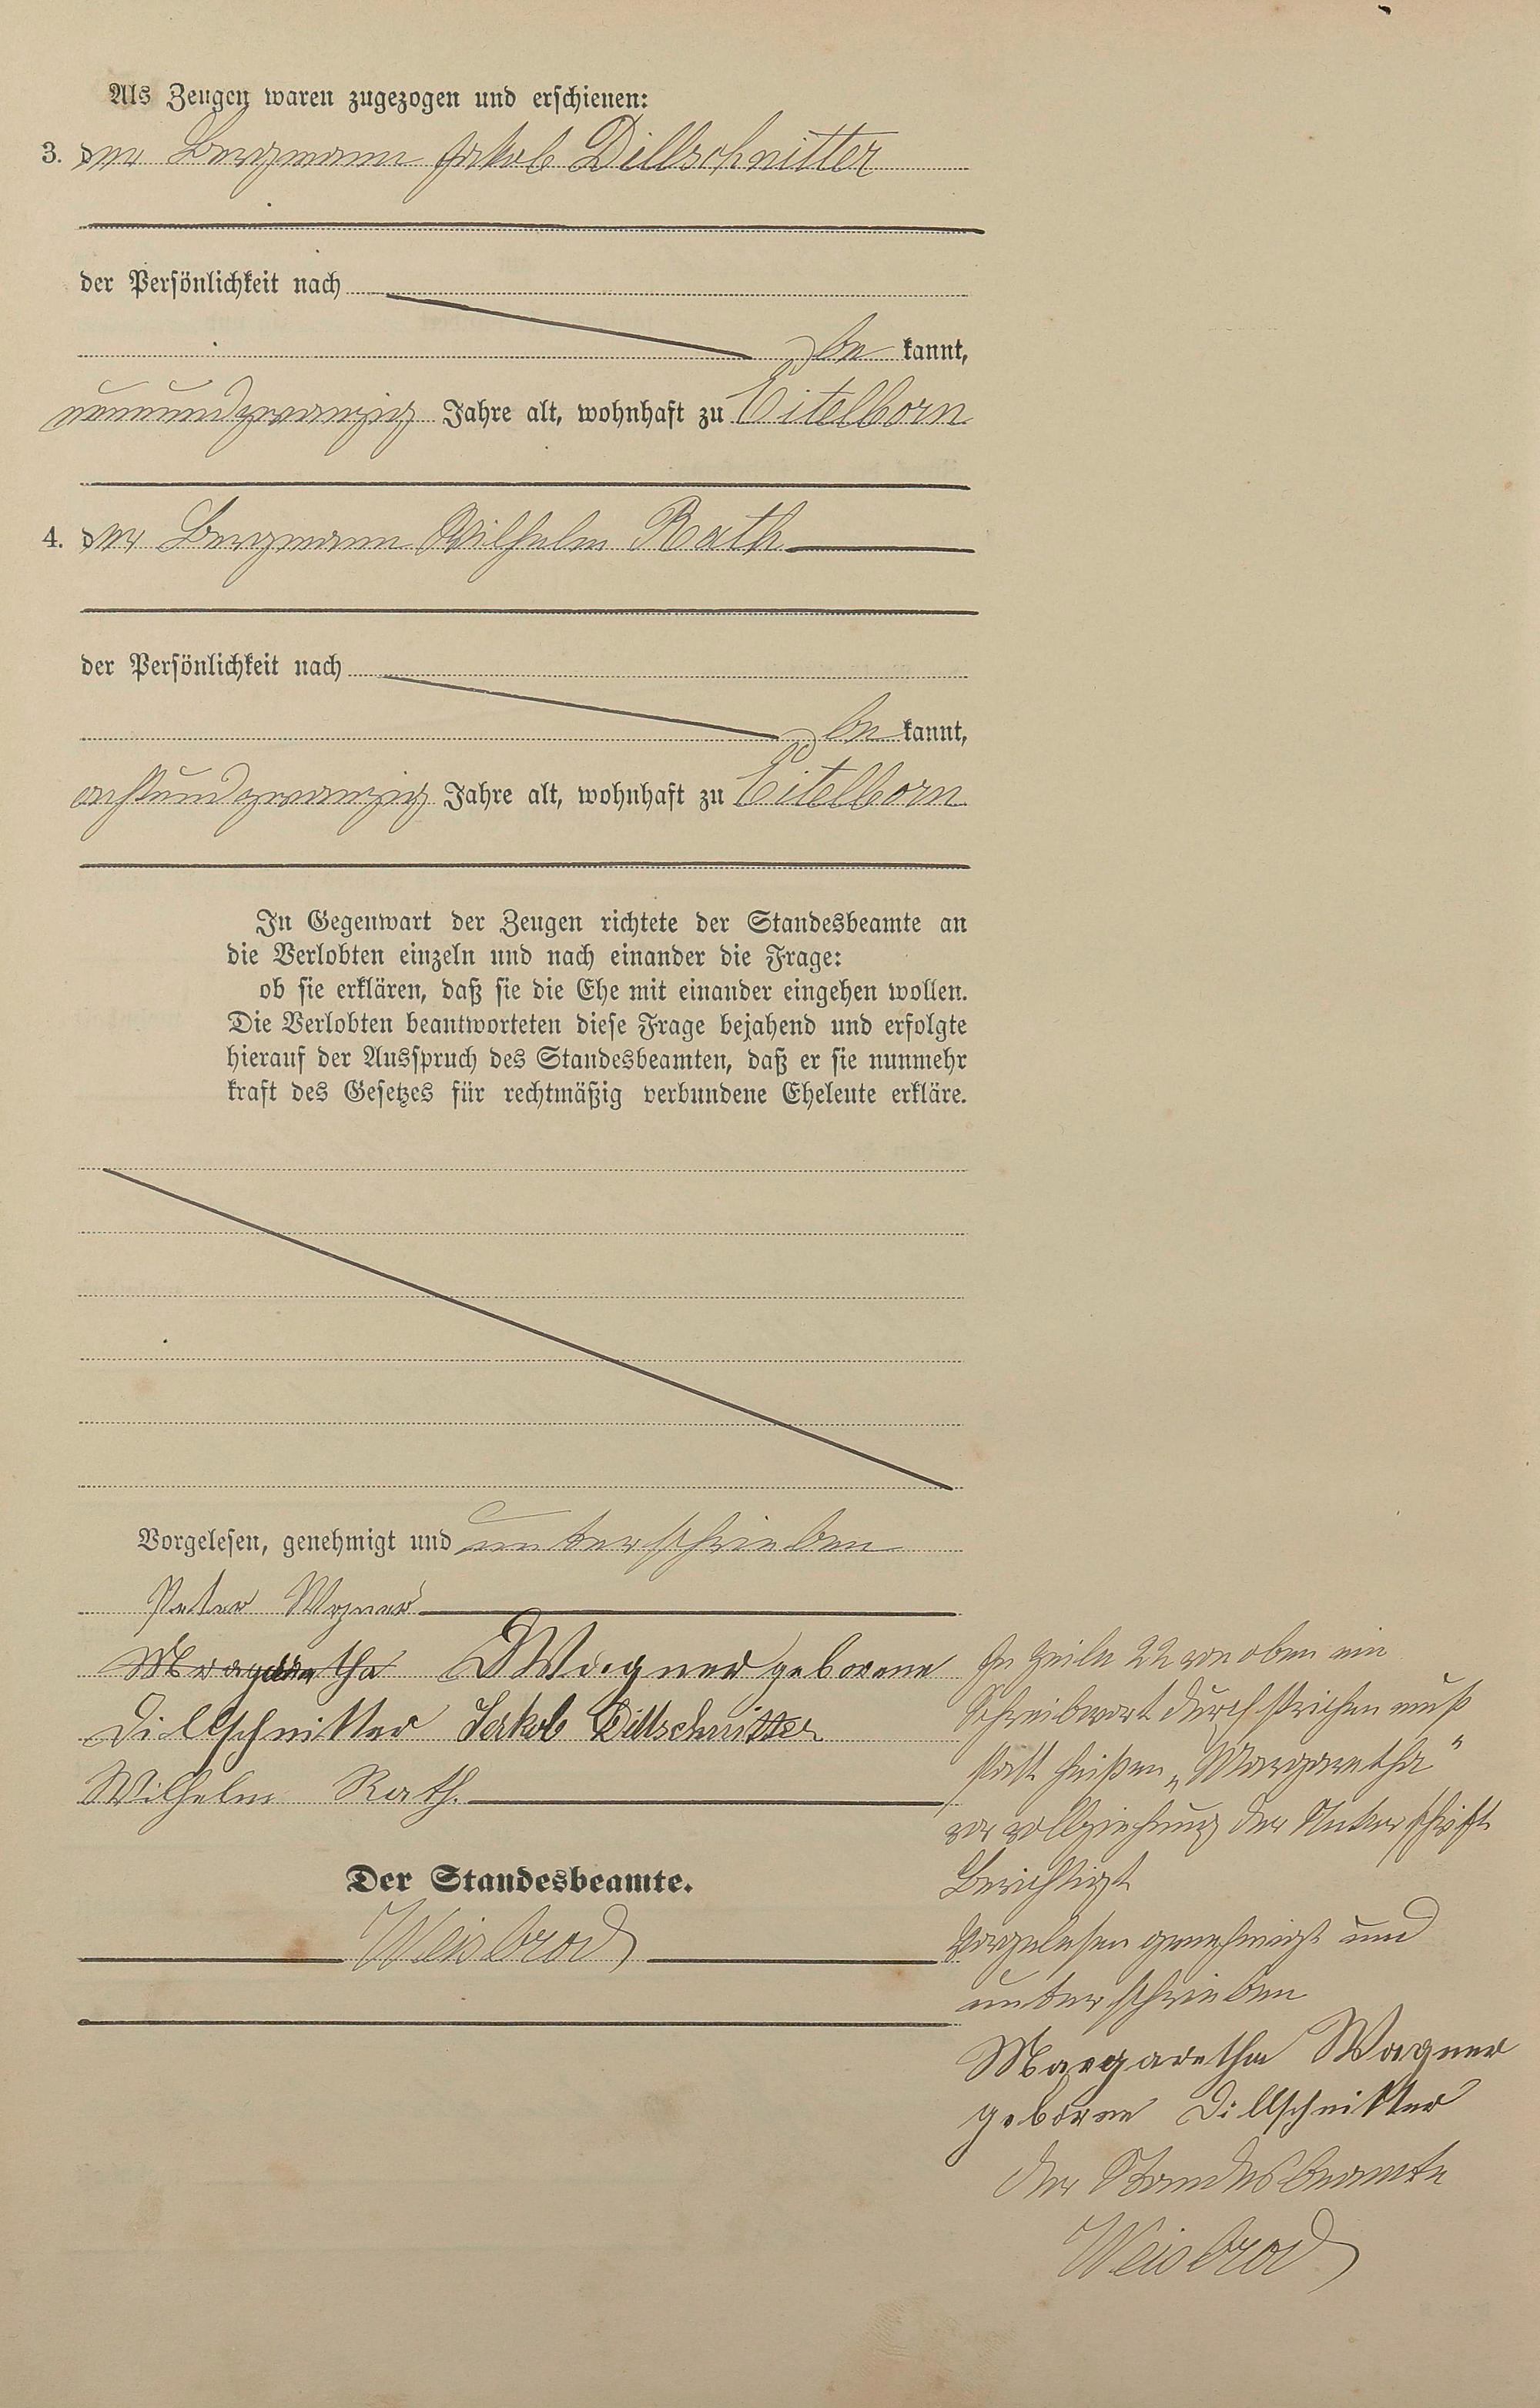 Als Zeugen waren zugezogen und erschienen:
3. der Bergmann Jakob Dillschnitter
der Persönlichkeit nach
be kannt,
neunundzwanzig Jahre alt, wohnhaft zu Eitelborn
4. der Bergmann Wilhelm Rath
der Persönlichkeit nach
be kannt,
achtundzwanzig Jahre alt, wohnhaft zu Eitelborn
In Gegenwart der Zeugen richtete der Standesbeamte an
die Verlobten einzeln und nach einander die Frage:
ob sie erklären, daß sie die Ehe mit einander eingehen wollen.
Die Verlobten beantworteten diese Frage bejahend und erfolgte
hierauf der Ausspruch des Standesbeamten, daß er sie nunmehr
kraft des Gesetzes für rechtmäßig verbundene Eheleute erkläre.
Vorgelesen, genehmigt und unterschrieben
Peter Wagner
Wagner geborene
Dillschnitter Jakob Dillschnitter
Wilhelm Rath.
Der Standesbeamte.
Weisbrod
In Zeile 22 von oben ein
Schreibwort durchstrichen muß
statt heißen „Margaretha"
vor vollziehung der Unterschrift
Berichtigt
Vorgelesen genehmigt und
unterschrieben
Margaretha Wagner
geborne Dillschnitter
Der Standesbeamte
Weisbrod